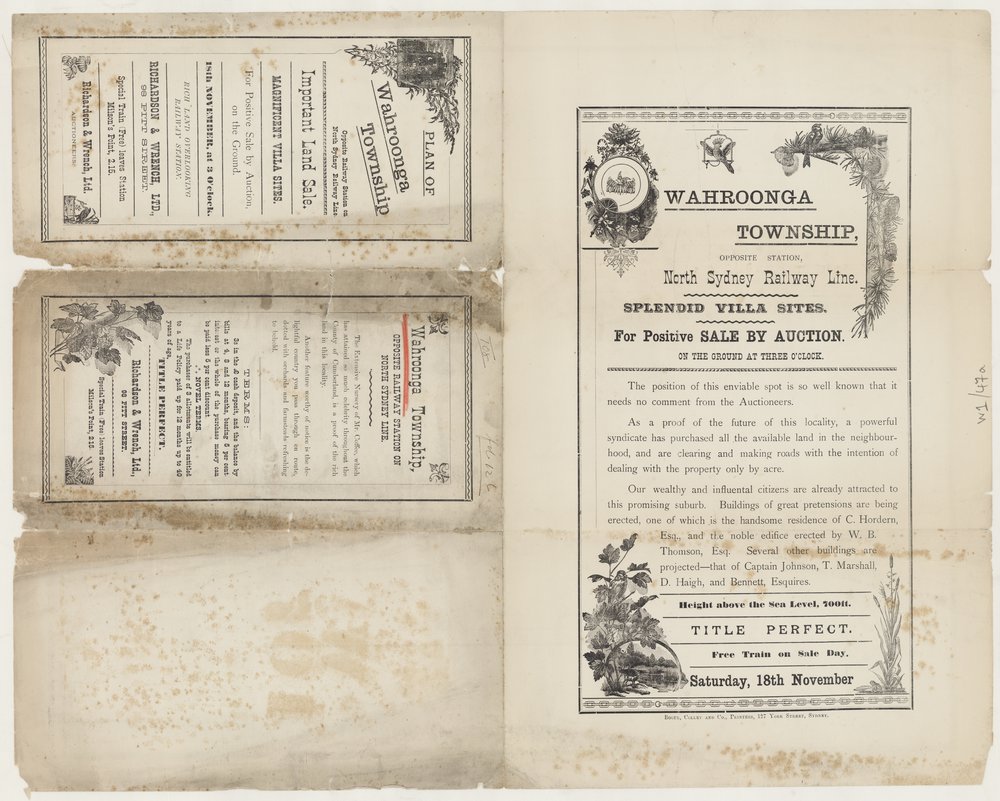 PLAN OF
Wahroonga
Township
Opposite Railway Station on
North Sydney Railway Line.
Important Land Sale.
MAGNIFICENT VILLA SITES.
For Positive Sale by Auction,
on the Ground.
18th NOVEMBER, at 3 O'clock.
RICH LAND OVERLOOKING
RAILWAY STATION.
RICHARDSON & WRENCH, LTD.,
98 PITT STREET.
Special Train (Free) leaves Station
Milson's Point, 2.15.
Richardson & Wrench, Ltd.
AUCTIONEERS.
Wahroonga Township,
OPPOSITE RAILWAY STATION ON
NORTH SYDNEY LINE.
The Extensive Nursery of Mr. Coffee, which
has attained so much celebrity throughout the
County of Cumberland, is a proof of the rich
land in this locality.
Another feature worthy of notice is the de-
lightful country you pass through en route,
dotted with orchards and farmsteads refreshing
to behold.
TERMS:
3s in the £ cash deposit, and the balance by
bills at 4, 8 and 12 months, bearing 5 per cent
interest or the whole of the purchase money can
be paid less 5 per cent discount
NOVEL TERMS.
The purchaser of 3 allotments will be entitled
to a Life Policy paid up for 12 months up to 40
years of age.
TITLE PERFECT.
Richardson & Wrench, Ltd.,
98 PITT STREET.
Special Train (Free) leaves Station
Milson's Point, 2.15
WAHROONGA
TOWNSHIP,
OPPOSITE STATION,
North Sydney Railway Line.
SPLENDID VILLA SITES.
For Positive SALE BY AUCTION.
ON THE GROUND AT THREE O'CLOCK.
The position of this enviable spot is so well known that it
needs no comment from the Auctioneers.
As a proof of the future of this locality, a powerful
syndicate has purchased all the available land in the neighbour-
hood, and are clearing and making roads with the intention of
dealing with the property only by acre.
Our wealthy and influental citizens are already attracted to
this promising suburb. Buildings of great pretensions are being
erected, one of which is the handsome residence of C. Hordern,
Esq., and the noble edifice erected by W. B.
Thomson, Esq. Several other buildings are
projected—that of Captain Johnson, T. Marshall,
D. Haigh, and Bennett, Esquires.
Height above the Sea Level, 700ft.
TITLE PERFECT.
Free Train on Sale Day.
Saturday, 18th November
BOGUE, COLLEY AND CO., PRINTERS, 127 YORK STREET, SYDNEY.